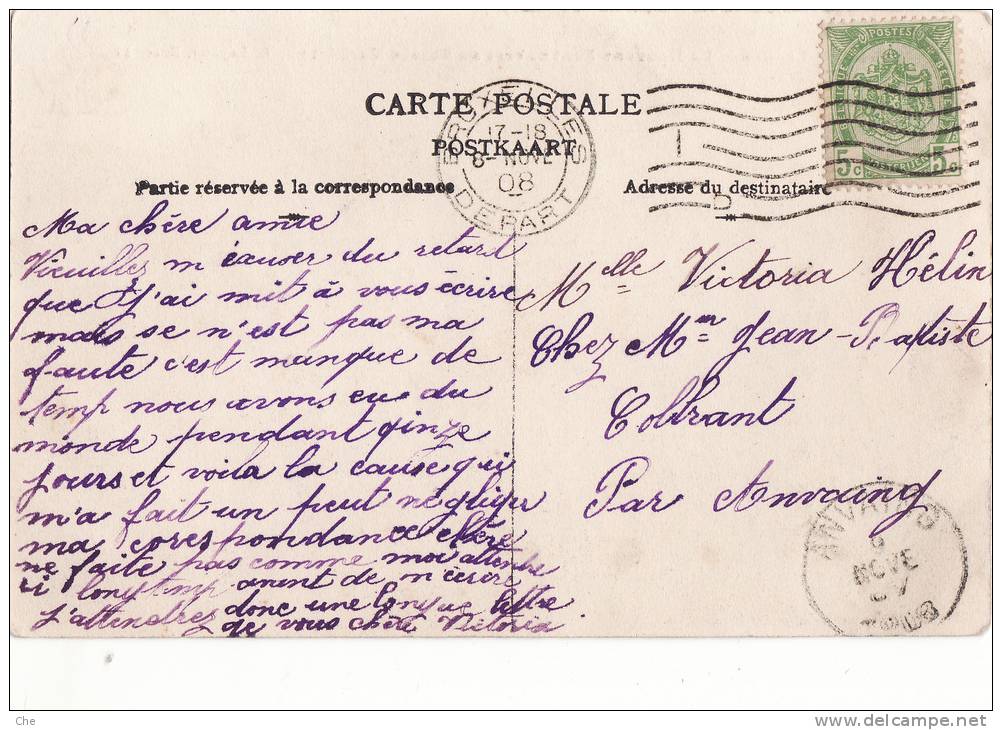 CARTE POSTALE
POSTKAART
Partie réservée à la correspondance
Adresse du destinataire
POSTES
5c 5c
BRUXELLES
17-18
8- NOVE
08
DEPART
Ma chère amie
Vieuillez m'éxuser du retard
que J'ai mit à vous écrire
mais se n'est pas ma
faute c'est manque de
temp nous avons eu du
monde pendant qinze
jours et voila la cause qui
m'a fait un peut négliger
ma corespondance chère
ne faite pas comme moi attendre
si longtemp avent de m'écrire
J'attendrez donc une longue lettre
de vous chère Victoria
Melle Victoria Hélin
Chez Mme Jean-Baptiste
Colbrant
Par Anvaing
ANVAING
NOVE
Che
www.delcampe.net